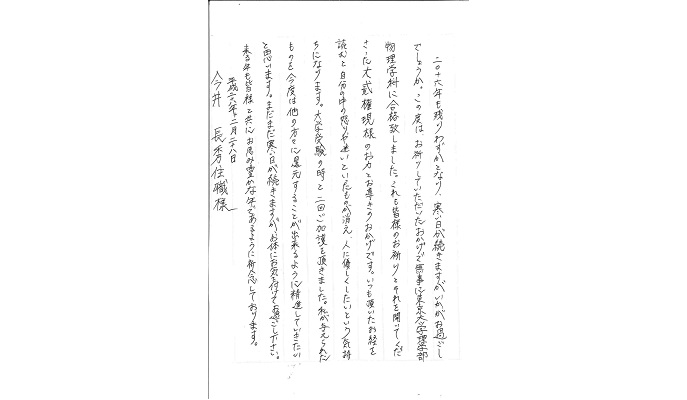 二〇十六年も残りわずかとなり、寒い日が続きますがいかがお過ごし
でしょうか。この度は、お祈りしていただいたおかげで無事に東京大学理学部
物理学科に合格致しました。これも皆様のお祈りとそれを聞いてくだ
さった大威権現様のお力とお導きのおかげです。いつも頂いたお経を
読むと自分の中の怒りや迷いといったものが消え、人に優しくしたいという気持
ちになります。大学受験の時と二回ご加護を頂きました。私が与えられた
ものを今度は他の方々に還元することが出来るように精進していきたい
と思います。まだまだ寒い日が続きますが、お体にお気を付けてお過ごしください。
来る年も皆様と共にお恵み豊かな年であるように祈念しております。
平成二八年十二月二十八日
今井 長秀住職様